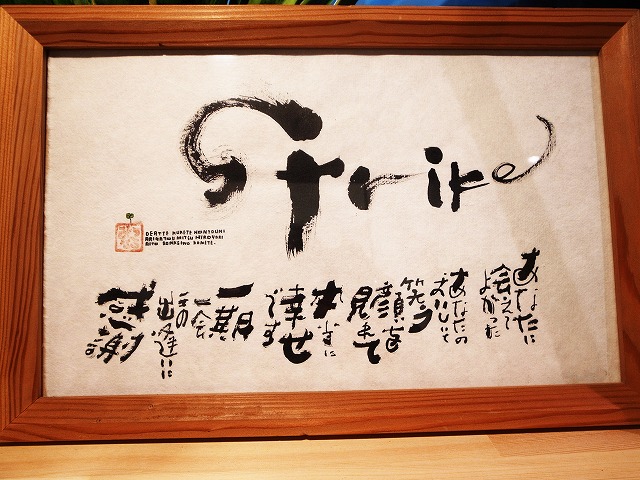 Strike
DEATTE KURETE HONTOUNI
ARIGATOU MITSU HIROYUKI
あなたに
会えて
よかった
あなたの
笑う
顔を
見れて
本当に
幸せ
です
一期
一会
この
出逢いに
感謝